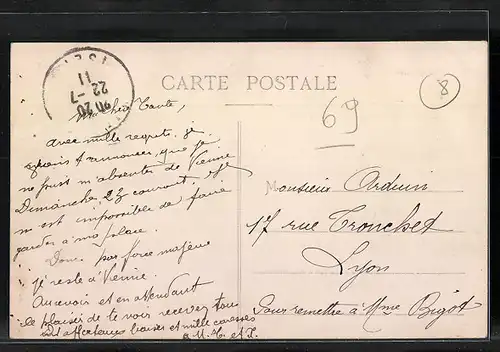 CARTE POSTALE
20 20
22 - 7
11
8
69
Ma chère Tante,
avec mille regrets, je
viens t'annoncer, que je
ne puis m'absenter de Vienne
Dimanche, 23 courant, et je
m'est impossible de faire
garder à ma place.
Donc par force majeure
je reste à Vienne.
Au revoir et en attendant
le plaisir de te voir recevez tous
affectueux baisers et mille caresses
Monsieur Arduin
17 rue Tronchet
Lyon
Pour remettre à Mme Bigot